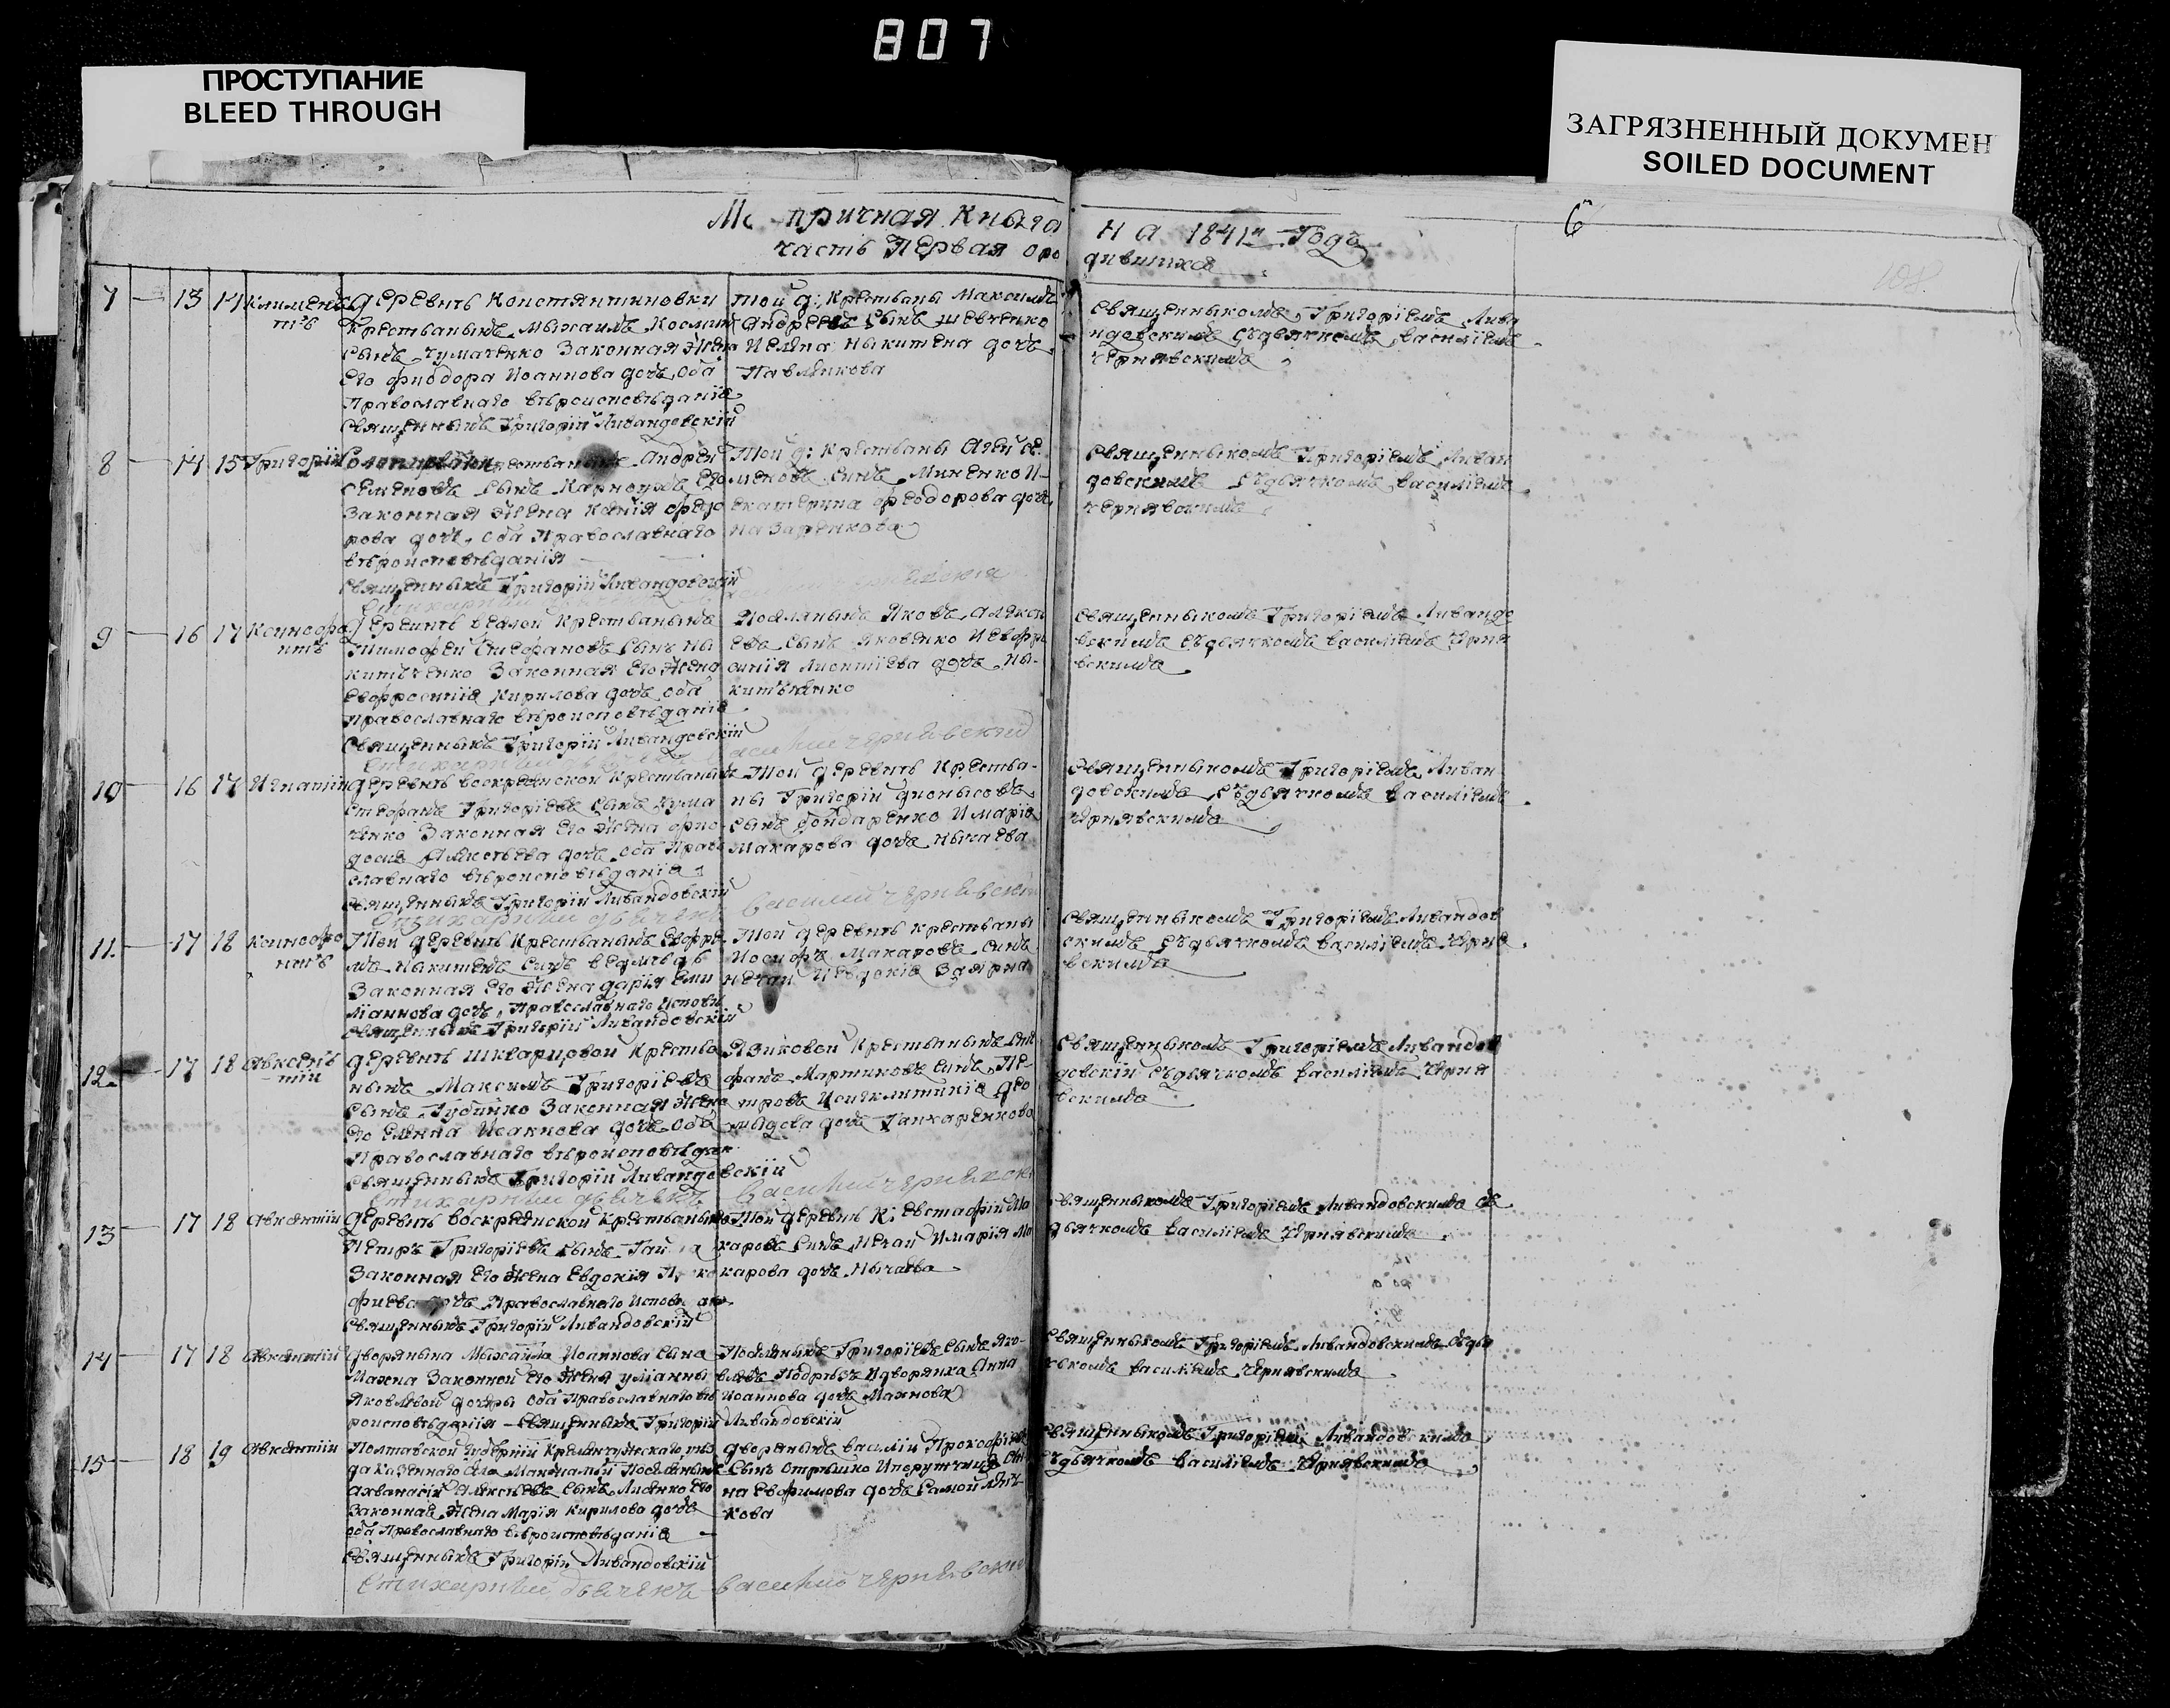 807
ПРОСТУПАНИЕ
BLEED THROUGH
ЗАГРЯЗНЕННЫЙ ДОКУМЕН
SOILED DOCUMENT
Ме тричная Книга на 1841й Годъ
часть Первая о родившихся
6
108
7 13 14 Климентъ
деревнѣ Константиновки
крестьянинъ Мыхаилъ Космин
сынъ Чумаченко Законная Жена
его Фиодора Иоаннова дочь оба
Православнаго вѣроисповѣданія
Священникъ Григорій Ливандовскій
той д: крестьяны Максимъ
Андреевъ сынъ Шевченко
и Елена Ныкитена дочь
Павленкова
Священыкомъ Григоріемъ Ливан
довскимъ съдьячкомъ Василіемъ
Чернявскимъ
8 14 15 Григорій
крестьянинъ Андрей
Семеновъ сынъ Карноухъ его
Законная Жена Ксенія Феодо
рова дочь оба Православнаго
вѣроисповѣданія
Священыкъ Григорій Ливандовскій
Той д: крестьяны Агей Се
меновъ синъ Миненко и
Екатерина Феодорова дочь
Назаренкова
Священныкомъ Григоріемъ Ливан
довскимъ съдьячкомъ Василіемъ
Чернявскимъ
9 16 17 Ксинофонтъ
деревнѣ Веселой Крестьянынъ
Тимофей Стефановъ сынъ Ны
китченко Законная его Жена
Евфросинія Кирилова дочь оба
православнаго вѣроисповѣданія
Священныкъ Григорій Ливандовскій
Поселянынъ Яковъ Алексѣ
евъ сынъ Яковенко и Евфро
синія Леонтіева дочь Ны
китченко
Василий Чернявский
Священныкомъ Григоріемъ Ливандо
вскимъ съдьячкомъ Василіемъ Черня
вскимъ
10 16 17 Игнатій
деревнѣ Воскресенской крестьянынъ
Стефанъ Григоріевъ сынъ Кума
ченко Законная его Жена Фио
досия Алексѣева дочь оба Право
славнаго вѣроисповѣданія
Священныкъ Григорій Ливандовскій
Стихарный дьячекъ Василий Чернявский
Той деревнѣ крестья
ны Григорій Дионысовъ
сынъ Бондаренко и Марія
Макарова дочь Нычаева
Священныкомъ Григоріемъ Ливан
довскимъ съдьячкомъ Василіемъ
Чернявскимъ
11. 17 18 Ксинофонтъ
Той деревнѣ Крестьянынъ Ефре
мъ Ныкитенъ синъ Ведмѣдь
Законная его Жена Дарія Еми
ліаннова дочь Православнаго Исповѣ
Священныкъ Григорій Ливандовскій
Той деревнѣ крестьяны
Иосифъ Макаровъ синъ
Нечай и Евдокія Заярна
Священныкомъ Григоріемъ Ливандов
скимъ съдьячкомъ Василіемъ Черня
вскимъ
12. 17 18 Авксентій
деревнѣ Шкварцовой Крестья
нынъ Максимъ Григоріевъ
сынъ Губинко Законная Жена
его Елена Исаакова дочь оба
Православнаго вѣроисповѣдан
Священныкъ Григорій Ливандовскій
Стихарный дьячекъ Василий Чернявский
Язиковой Крестянынъ Сте
фанъ Мартиновъ синъ Пе
тровъ
мыдова дочь Ганжаренкова
Священныкомъ Григоріемъ Ливандов
довскій съдьячкомъ Василіемъ Черня
вскимъ
13 17 18 Авксентій
деревнѣ Воскресенской Крестьянынъ
Петръ Григоріевъ сынъ
Законная его Жена Евдокія
дочь Православнаго Испов
Священныкъ Григорій Ливандовскій
Той деревнѣ К: Евстафій Ма
каровъ синъ Нечай и Марія Ма
карова дочь Нычаева
Священныкомъ Григоріемъ Ливандовскимъ съ
дьячкомъ Василіемъ Чернявскимъ
14 17 18 Авксентій
дворянына Мыхайла Иоаннова сына
Махна Законной его Жены Уліанны
Яковлевой дочеры оба Православнаго вѣ
роисповѣданія Священныкъ Григорій Ливандовскій
Поселянынъ Григоріевъ сынъ Яко
влевъ Подрѣзъ и дворянка Анна
Иоаннова дочь Махнова
Священныкомъ Григоріемъ Ливандовскимъ съдья
чкомъ Василіемъ Чернявскимъ
15 18 19 Авксентій
Полтавской Губерніи Кременчугскаго уѣз
да казеннаго села Поселянынъ
Афанасій Алексѣевъ сынъ Лисенко его
Законная Жена Марія Кирилова дочь
оба Православнаго вѣроисповѣданія
Священныкъ Григорій Ливандовскій
Стихарный дьячекъ Василий Чернявский
дворянынъ Василій Прокофіевъ
сынъ Отрешко
на Евфимова дочь Самойленкова
Священныкомъ Григоріемъ Ливандовскимъ
съдьячкомъ Василіемъ Чернявскимъ